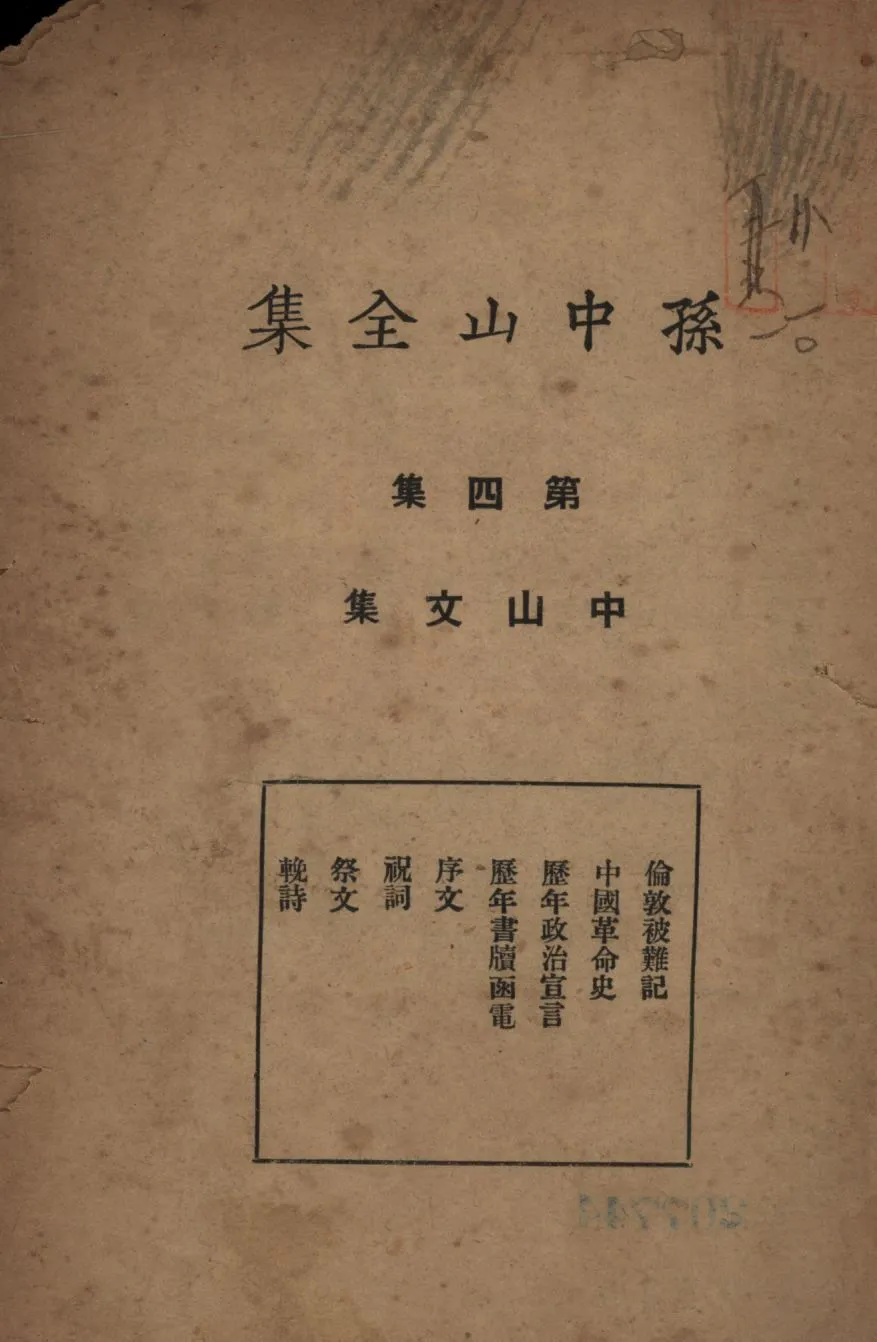 孫中山全集
第四集
中山文集
倫敦被難記
中國革命史
歷年政治宣言
歷年書牘函電
序文
祝詞
祭文
輓詩